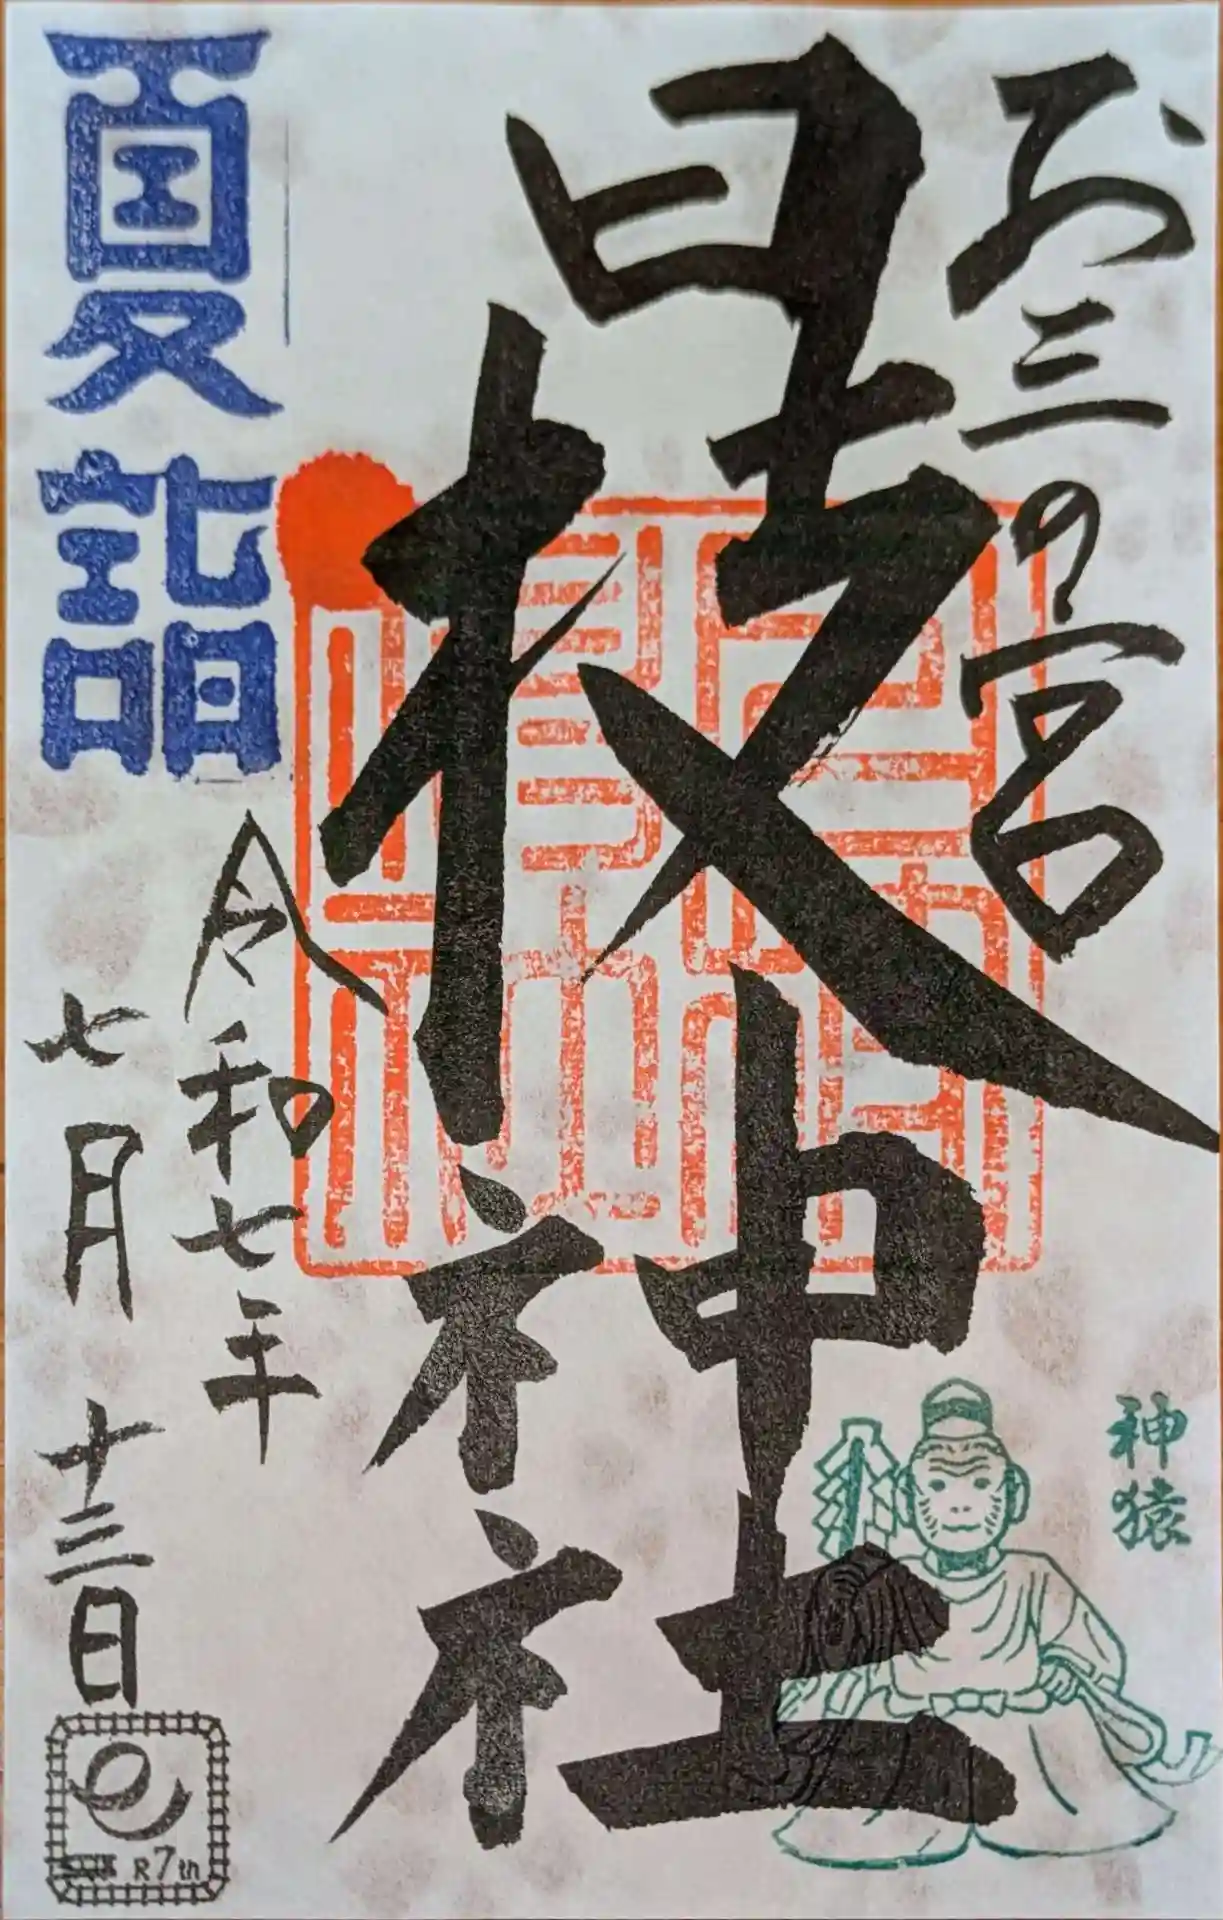 お三の宮
日枝神社
神猿
夏詣
令和七年
七月十三日
R7th